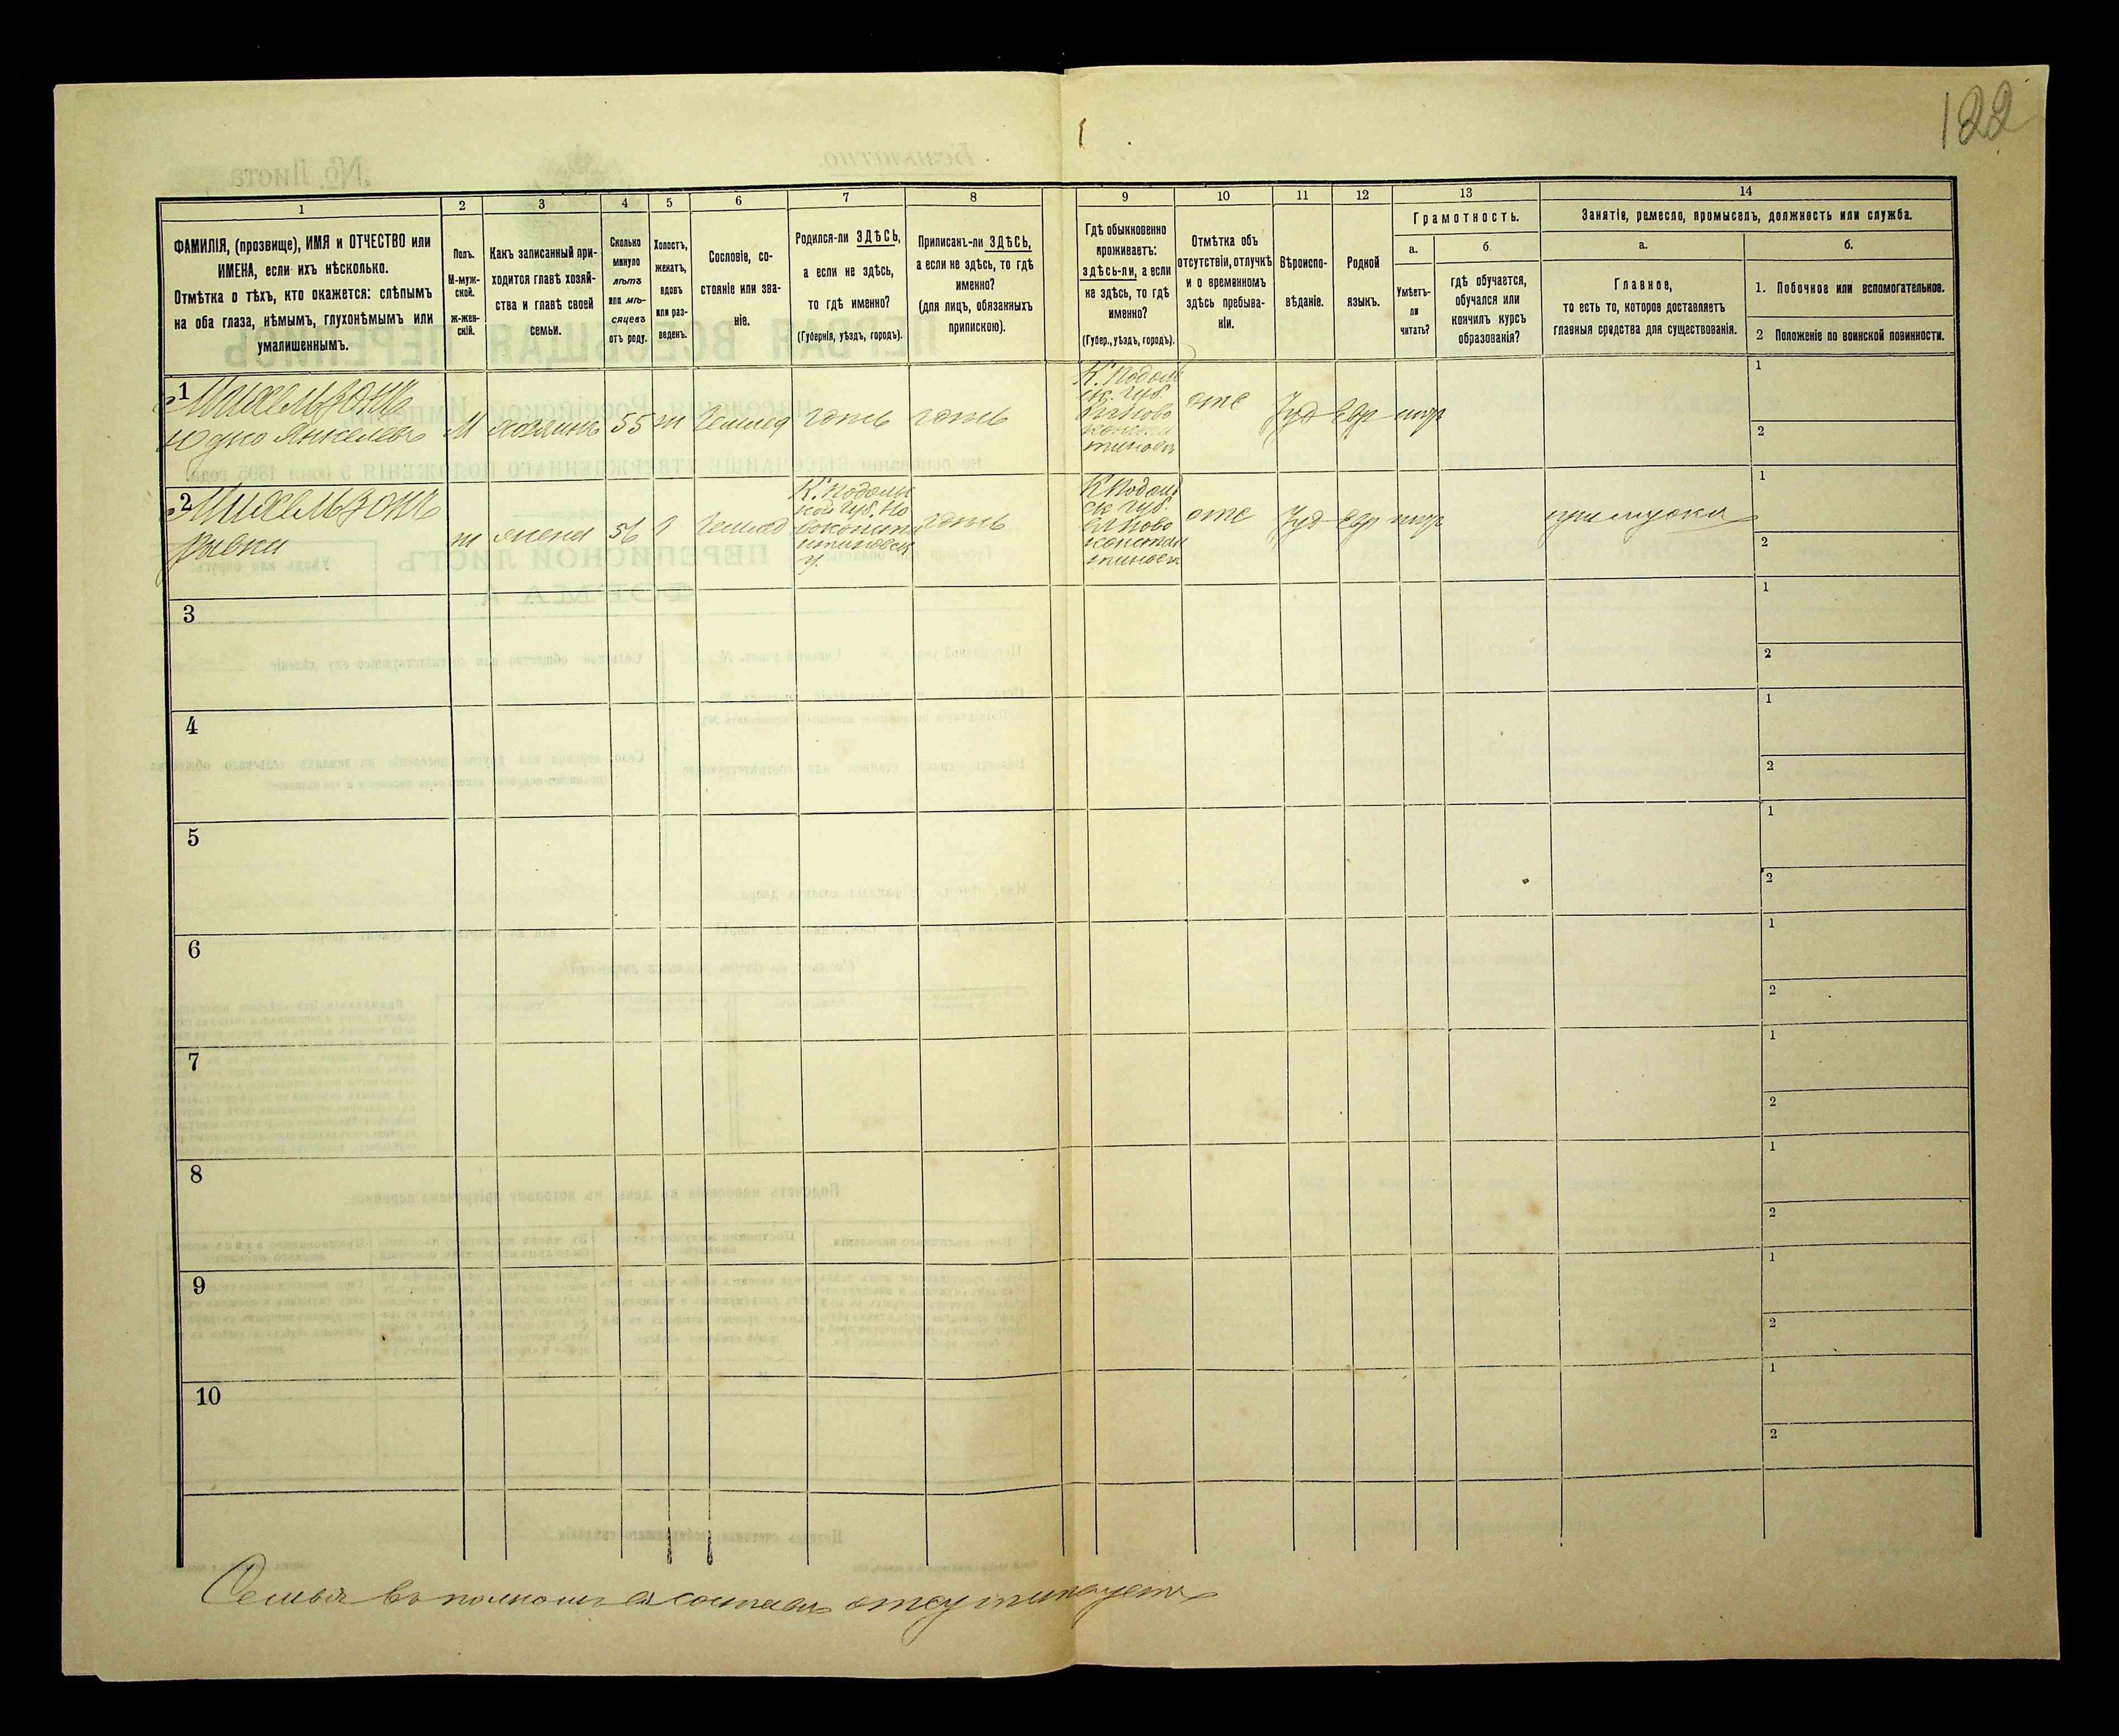 122
1
2
3
4
5
6
7
8
9
10
11
12
13
14
ФАМИЛІЯ, (прозвище), ИМЯ и ОТЧЕСТВО или
ИМЕНА, если ихъ нѣсколько.
Отмѣтка о тѣхъ, кто окажется: слѣпымъ
на оба глаза, нѣмымъ, глухонѣмымъ или
умалишеннымъ.
Полъ.
М-муж-
ской.
ж-жен-
скій.
Какъ записанный при-
ходится главѣ хозяй-
ства и главѣ своей
семьи.
Сколько
минуло
лѣтъ
или мѣ-
сяцевъ
отъ роду.
Холостъ,
женатъ,
вдовъ
или раз-
веденъ.
Сословіе, со-
стояніе или зва-
ніе.
Родился-ли ЗДѢСЬ,
а если не здѣсь,
то гдѣ именно?
(Губернія, уѣздъ, городъ).
Приписанъ-ли ЗДѢСЬ,
а если не здѣсь, то гдѣ
именно?
(для лицъ, обязанныхъ
припискою).
Гдѣ обыкновенно
проживаетъ:
здѣсь-ли, а если
не здѣсь, то гдѣ
именно?
(Губер., уѣздъ, городъ).
Отмѣтка объ
отсутствіи, отлучкѣ
и о временномъ
здѣсь пребыва-
ніи.
Вѣроиспо-
вѣданіе.
Родной
языкъ.
Грамотность.
а.
б.
Умѣетъ-
ли
читать?
гдѣ обучается,
обучался или
кончилъ курсъ
образованія?
Занятіе, ремесло, промыселъ, должность или служба.
а.
б.
Главное,
то есть то, которое доставляетъ
главныя средства для существованія.
1. Побочное или вспомогательное.
2 Положеніе по воинской повинности.
1
Михельзонъ
Юдко Янкелевъ
М
хозяинъ
55
К. Подоль
ск. Губ.
отс
Іуд
Евр
1
2
2
Михельзонъ
Рывка
жена
56
К. Подоль
ской Губ. Но
К Подоль
ск Губ.
отс
Іуд
Евр
1
2
3
1
2
4
1
2
5
1
2
6
1
2
7
1
2
8
1
2
9
1
2
10
1
2
Семья въ полномъ составѣ отсутствуетъ